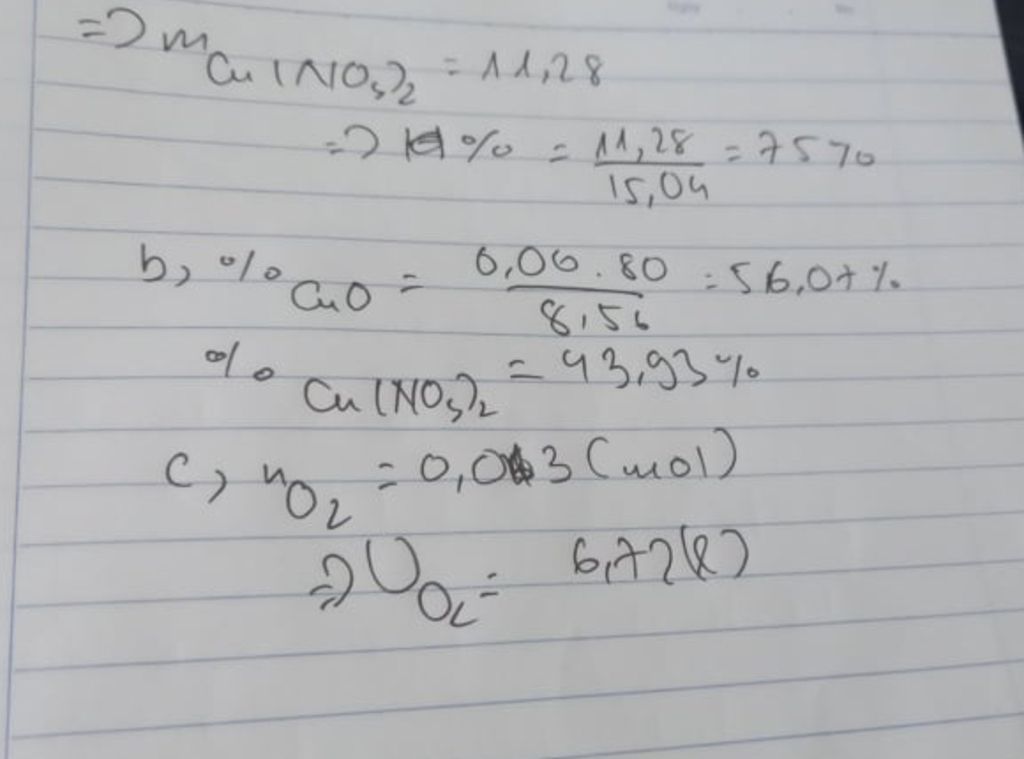 => m Cu(NO3)2 = 11,28
=> H% = 11,28/15,04 = 75%
b, % CuO = 0,06 . 80/8,56 = 56,07%
% Cu(NO3)2 = 43,93%
c, nO2 = 0,03 (mol)
=> VO2 = 6,72(l)